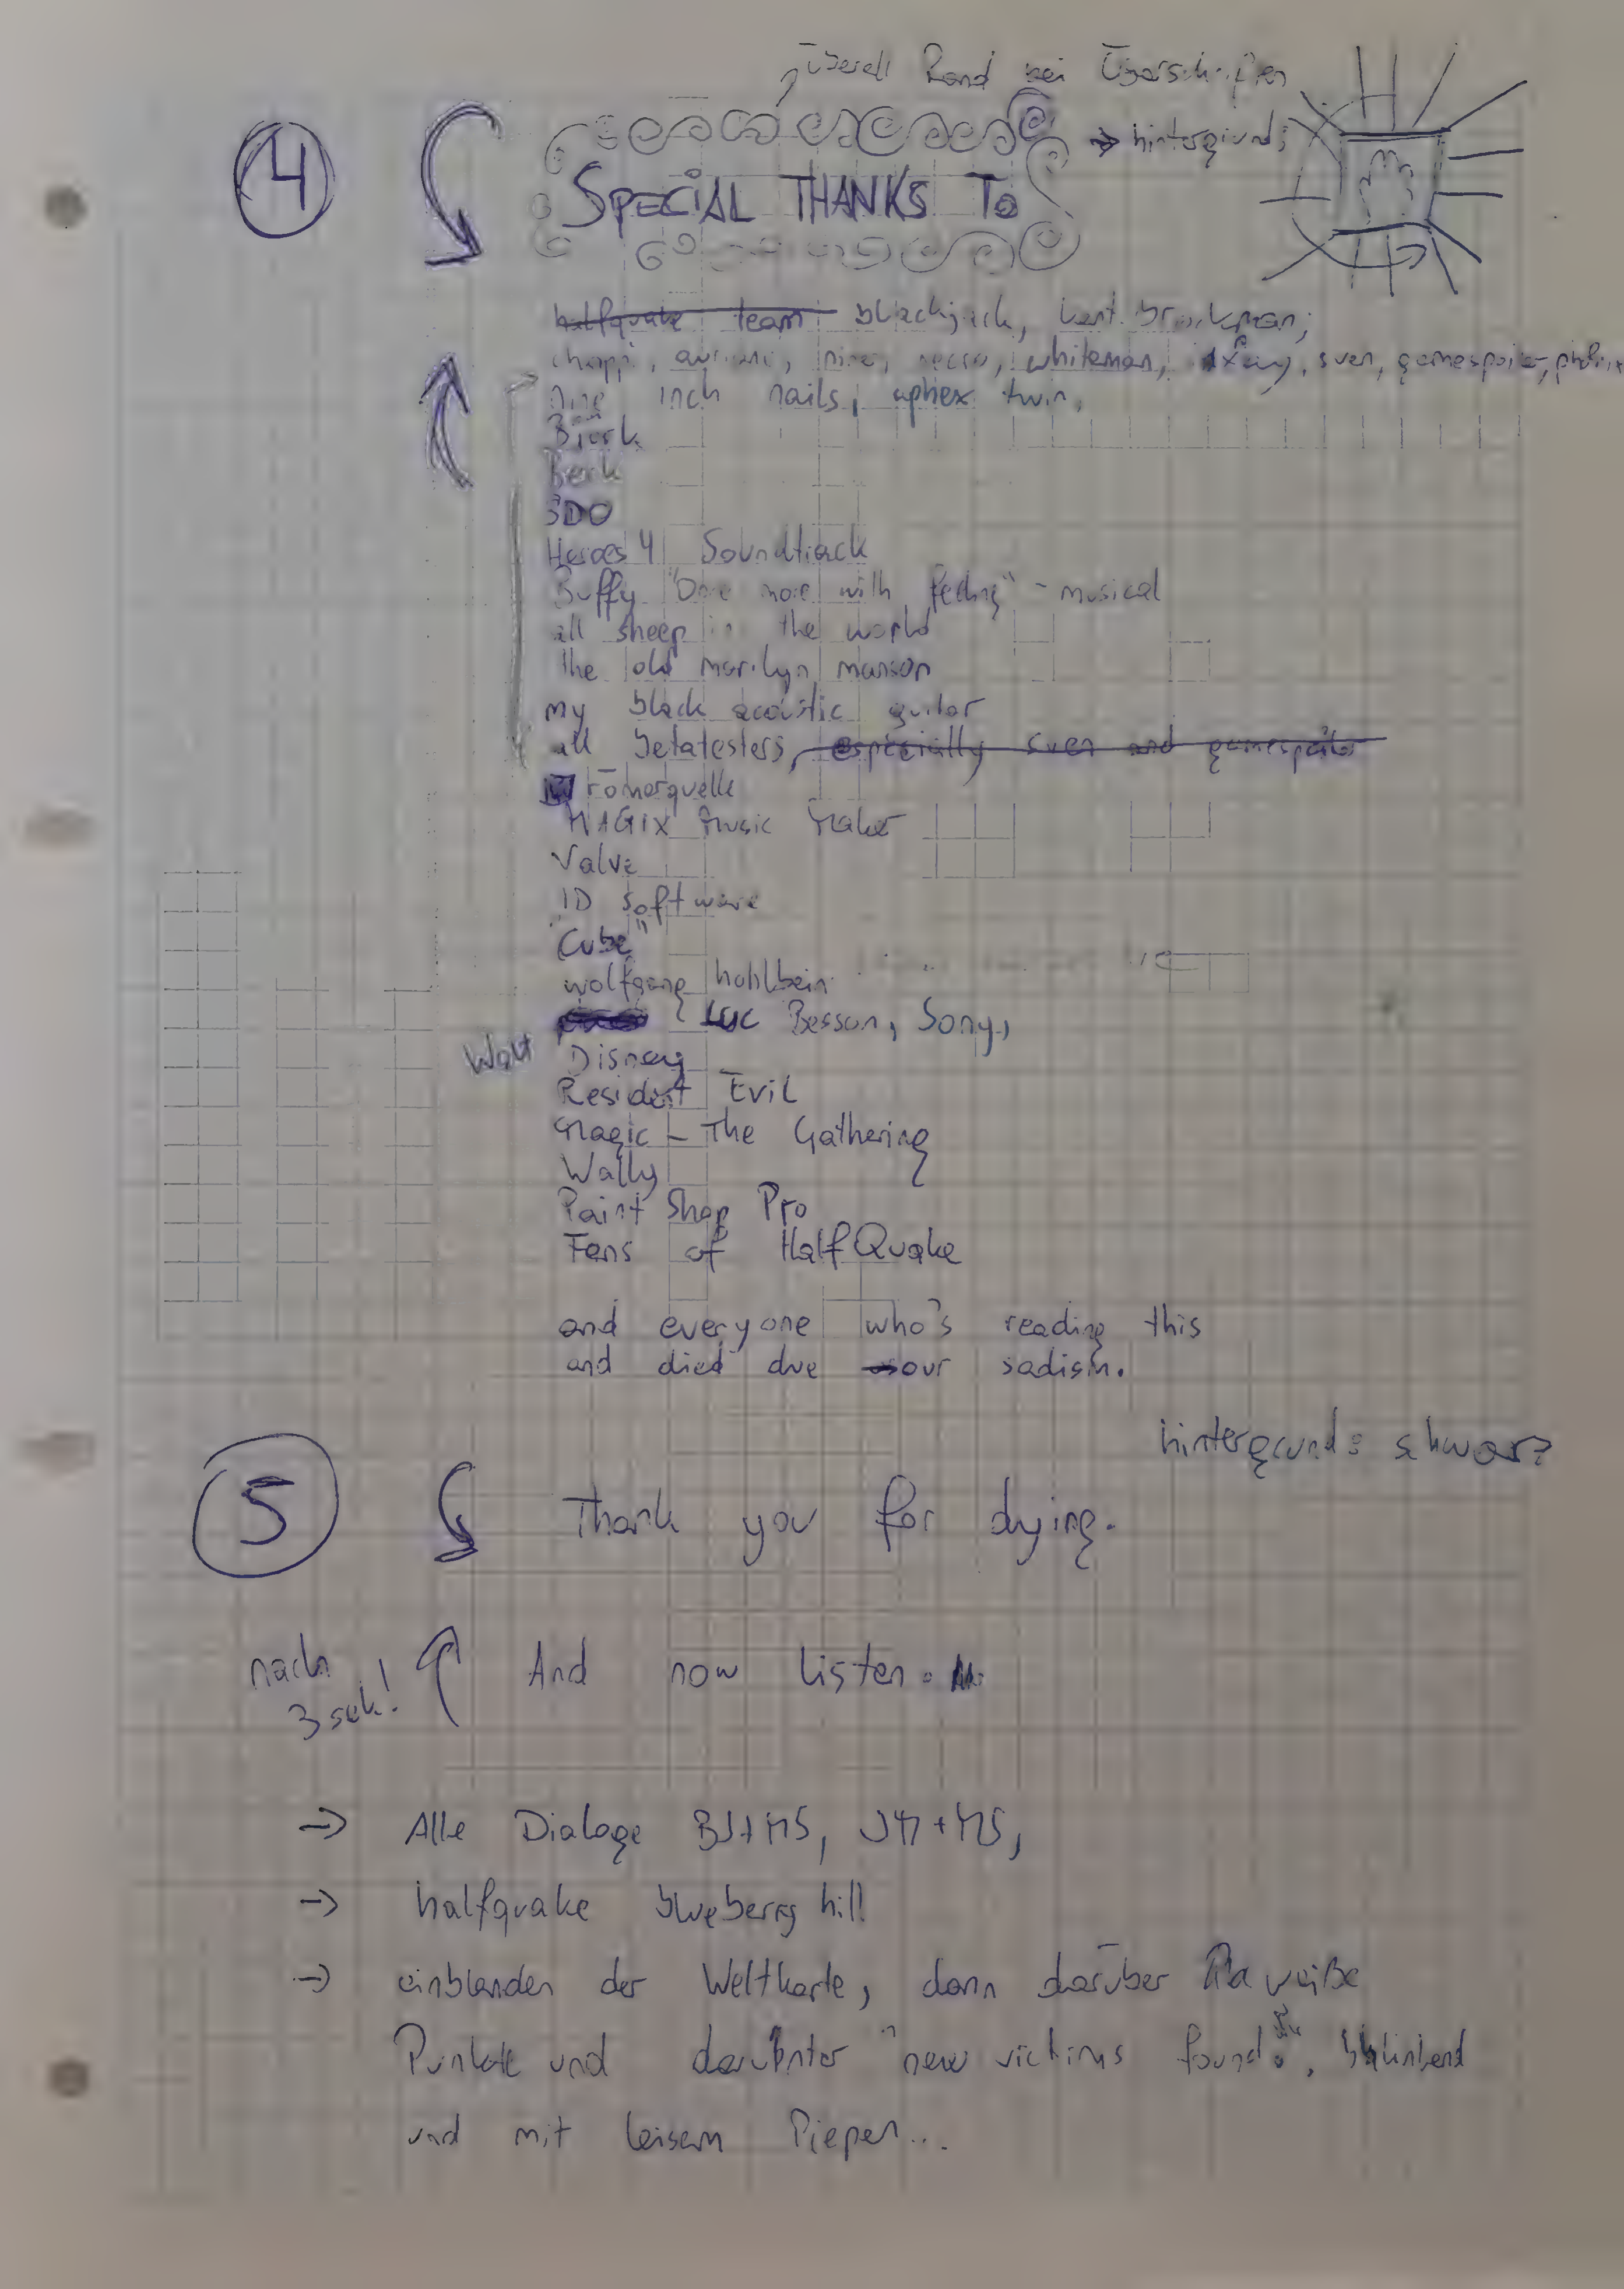 überall Rand bei Überschriften
4
→ hintergrund:
SPECIAL THANKS TO
halfquake team blackjack, kent brockman,
whiteman, sven, gamespoiler,
nine inch nails, aphex twin,
Björk
Beck
3DO
Heroes 4 Soundtrack
Buffy "Once more with feeling" - musical
all sheep in the world
the old marilyn manson
my black acoustic guitar
all betatesters, especially sven and gamespoiler
römerquelle
MAGIX Music Maker
Valve
ID software
"Cube"
wolfgang hohlbein
Luc Besson, Sony,
Walt Disney
Resident Evil
Magic - The Gathering
Wally
Paint Shop Pro
Fans of HalfQuake
and everyone who's reading this
and died due our sadism.
hintergrund: schwarz
5
Thank you for dying.
nach
3 sek!
And now listen.
→ Alle Dialoge BJ+MS, JM+MS,
→ halfquake blueberry hill
→ einblenden der Weltkarte, dann darüber weiße
Punkte und darunter "new victims found.", blinkend
und mit leisem Piepen...